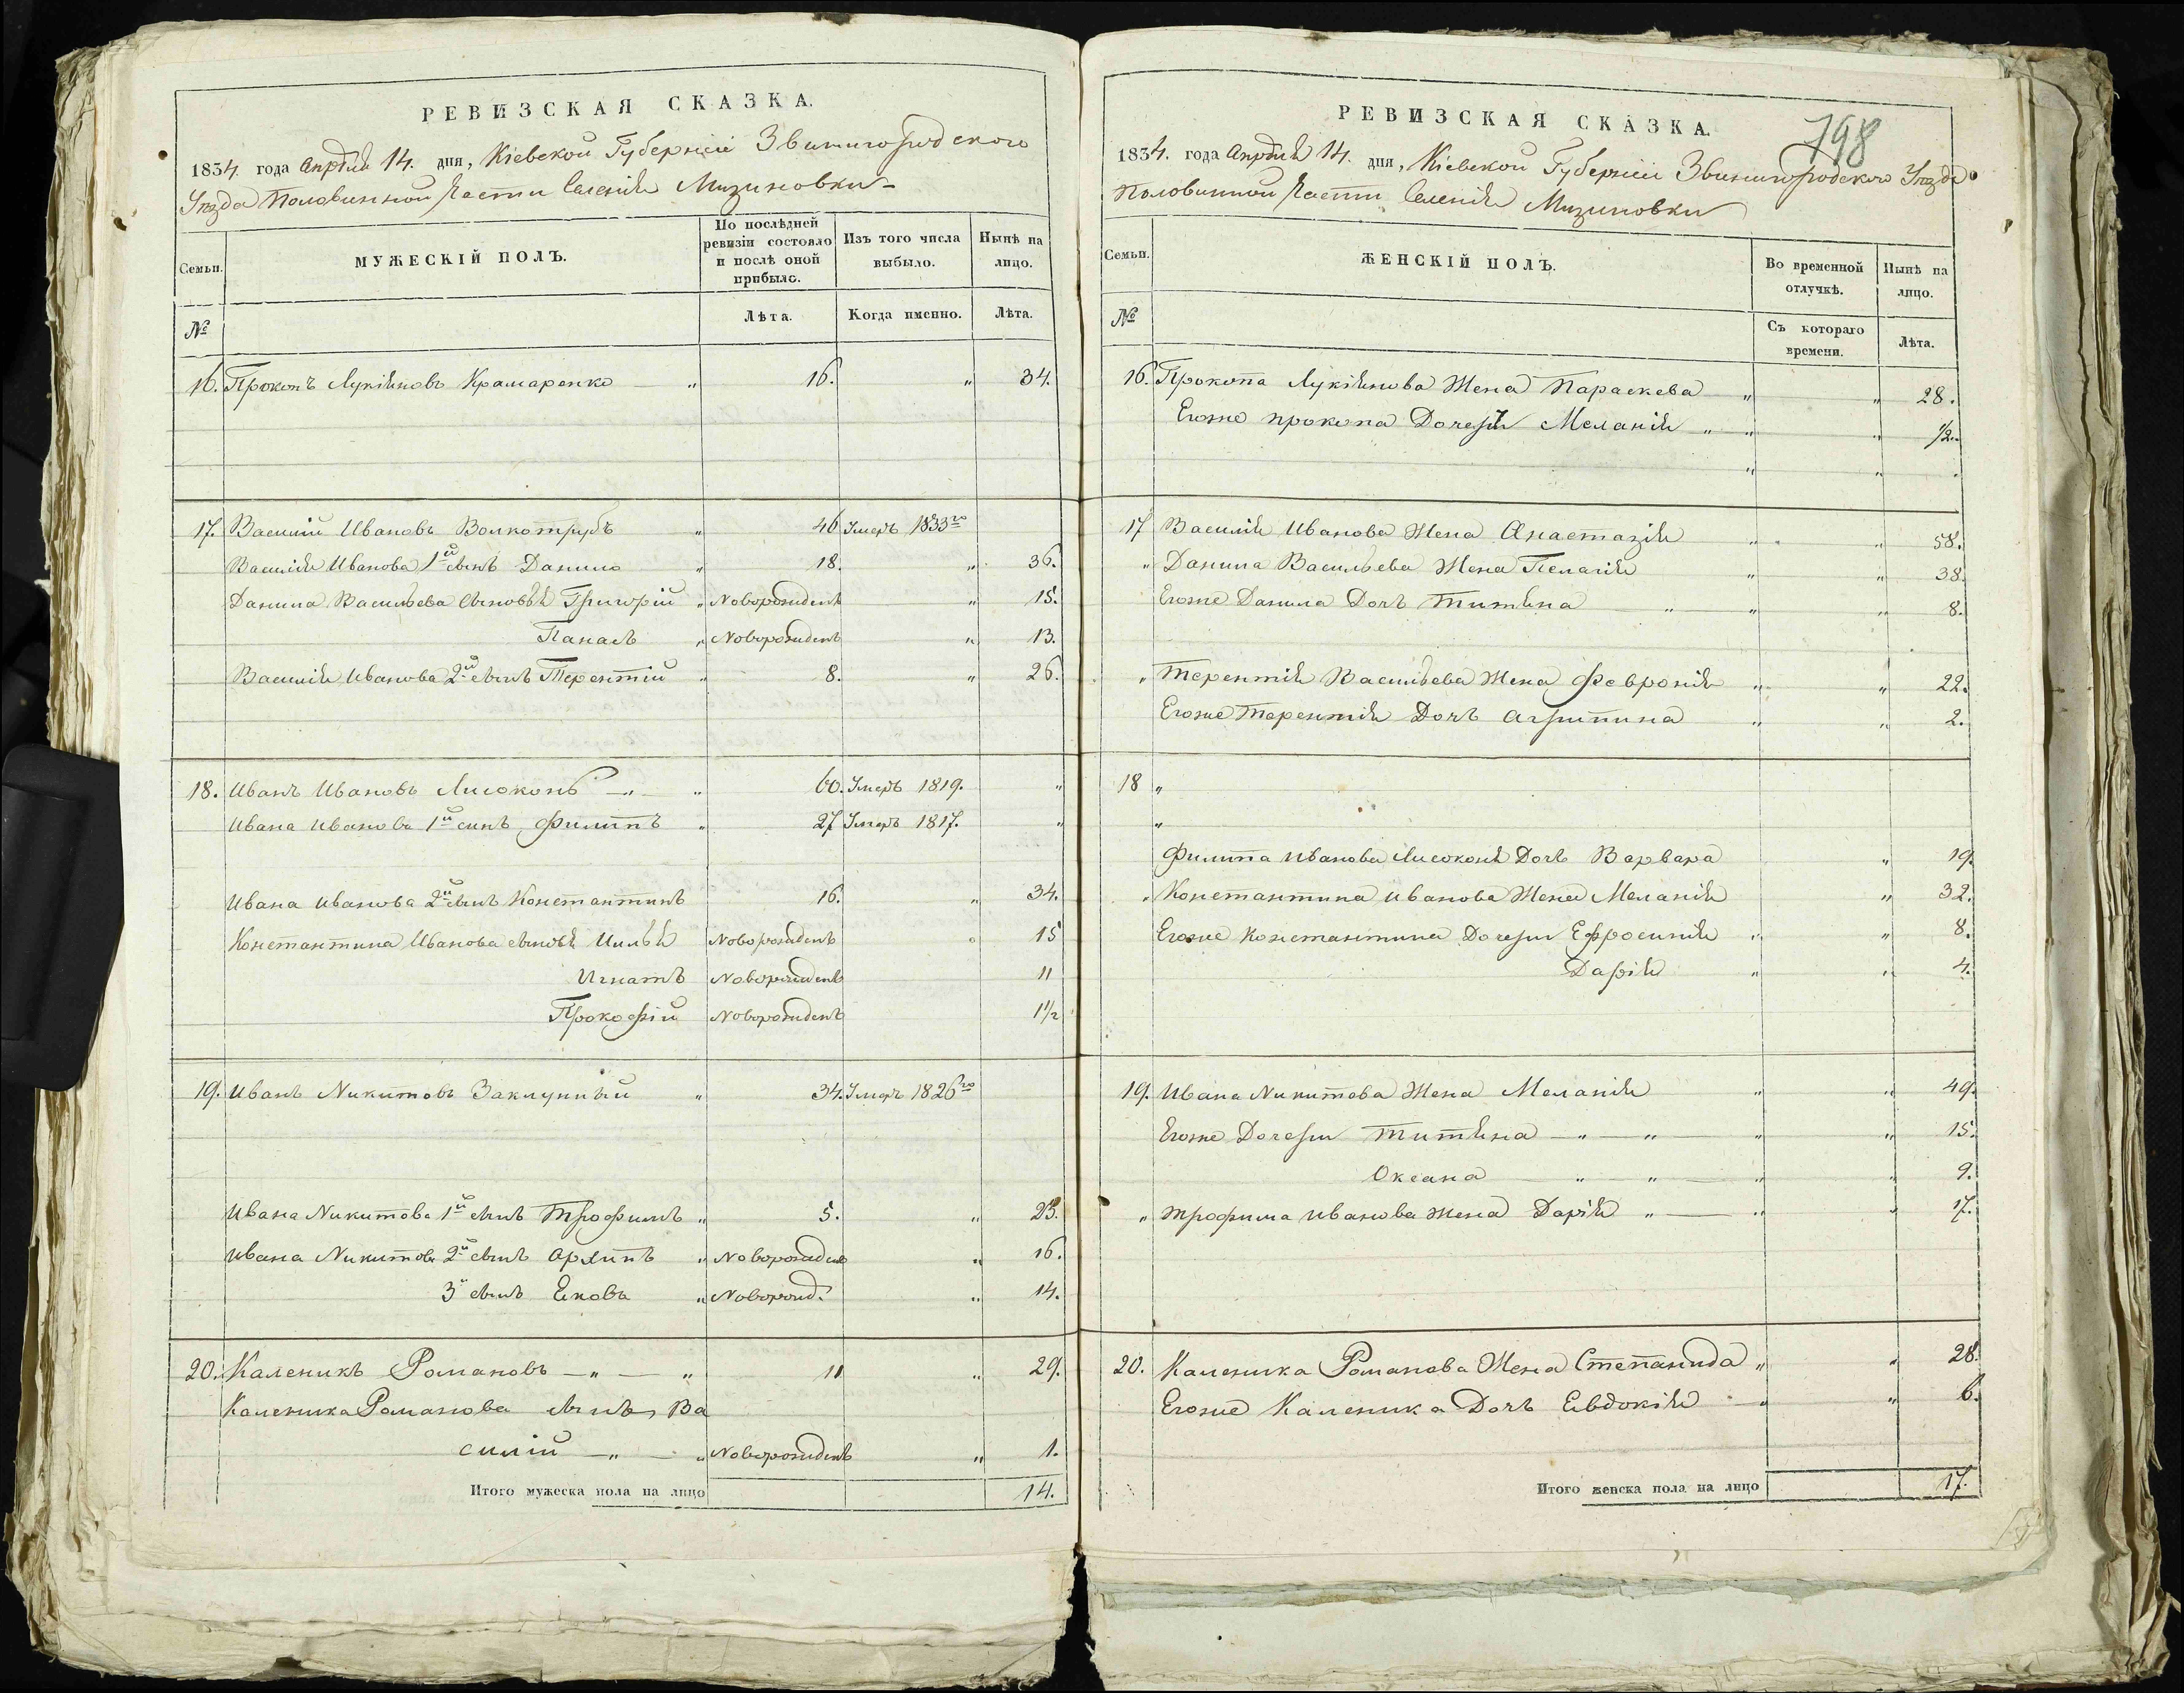 РЕВИЗСКАЯ СКАЗКА.
1834. года Апрѣля 14. дня, Кіевской Губерніи Звенигородского
Уѣзда Половинной Части Селенія Мизиновки
Семьи.
МУЖЕСКІЙ ПОЛЪ.
По послѣдней ревизіи состояло и послѣ оной прибыло.
Изъ того числа выбыло.
Нынѣ на лицо.
№
Лѣта.
Когда именно.
Лѣта.
16. Прокопъ Лукіяновъ Крамаренко " 16. " 34.
17. Василій Ивановъ Волкотрубъ " 46 Умеръ 1833го
Василія Иванова 1й сынъ Данило " 18. " 36.
Данила Васильева сыновья Григорій " Новорожденъ " 15.
Панасъ " Новорожденъ " 13.
Василія Иванова 2й сынъ Терентій " 8. " 26.
18. Иванъ Ивановъ Лисоконь " " 60. Умеръ 1819. "
Ивана Иванова 1й синъ Филипъ " 27 Умеръ 1817. "
Ивана Иванова 2й сынъ Константинъ 16. " 34.
Константина Иванова сыновя Илья Новорожденъ " 15
Игнатъ Новорожденъ 11
Прокофій Новорожденъ 1 1/2
19. Иванъ Никитовъ Заклунный " 34. Умеръ 1826го
Ивана Никитова 1й сынъ Трофимъ " 5. " 23.
Ивана Никитова 2й сынъ Архипъ " Новорожден " 16.
3й сынъ Яковъ " Новорожд. " 14.
20. Каленикъ Романовъ — " — " 11 " 29.
Каленика Романова сынъ Ва
силій — " — " Новорожденъ " 1.
Итого мужеска пола на лицо 14.
798
РЕВИЗСКАЯ СКАЗКА.
1834. года Апрѣля 14. дня, Кіевской Губерніи Звенигородского Уѣзда
Половинной Части Селенія Мизиновки
Семьи.
ЖЕНСКІЙ ПОЛЪ.
Во временной отлучкѣ.
Нынѣ на лицо.
№
Съ котораго времени.
Лѣта.
16. Прокопа Лукіянова Жена Параскева " " 28.
Егоже Прокопа Дочери Меланія " " " 1/2.
" " .
17 Василія Иванова Жена Анастазія " " 58.
" Данила Васильева Жена Пелагія " " 38.
Егоже Данила Дочь Титяна " " " 8.
" Терентія Васильева Жена Февронія " " 22.
Егоже Терентія Дочь Агрипина " " 2.
18 "
"
Филипа Иванова Лисоконя Дочь Варвара " 19.
" Константина Иванова Жена Меланія " 32.
Егоже Константина Дочери Ефросинія " " 8.
Дарія " " 4.
19. Ивана Никитова Жена Меланія " " 49.
Егоже Дочери Титяна — " — " — " " 15.
Оксана — " — " — " " 9.
" Трофима Иванова Жена Дарія " — " " 17.
20. Каленика Романова Жена Степанида " " 28.
Егоже Каленика Дочь Евдокія — " " 6.
Итого женска пола на лицо 17.